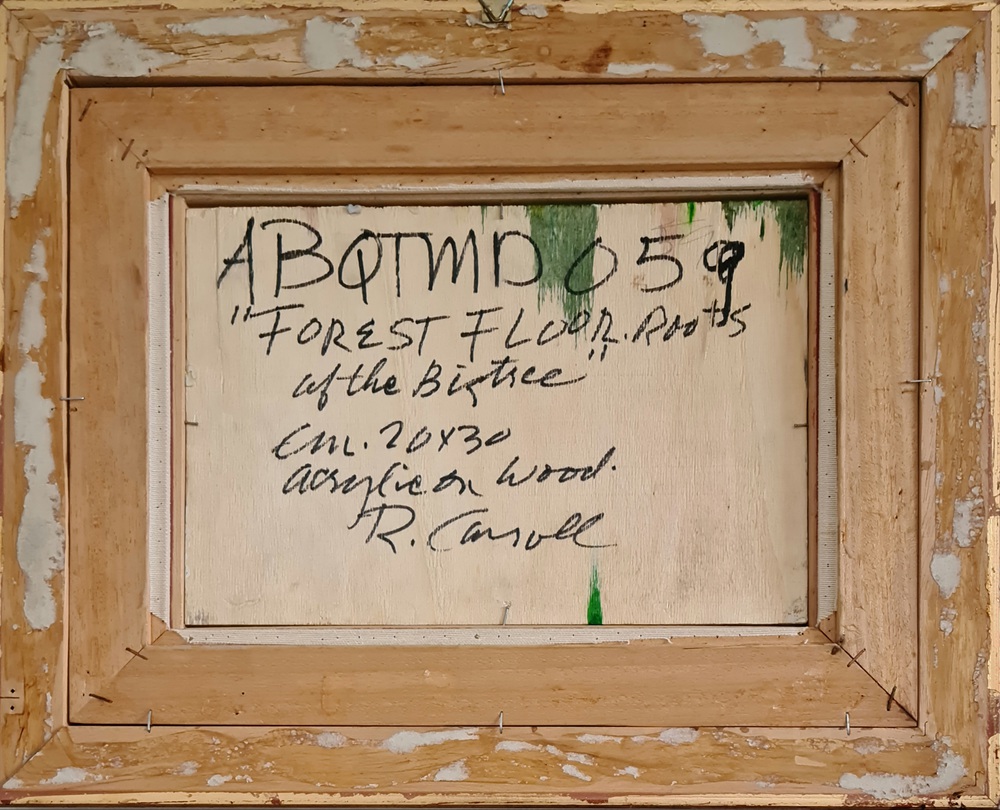 ABQTMD 059
"FOREST FLOOR. Roots
of the Bigtree"
cm. 20x30
acrylic on wood.
R. Carroll